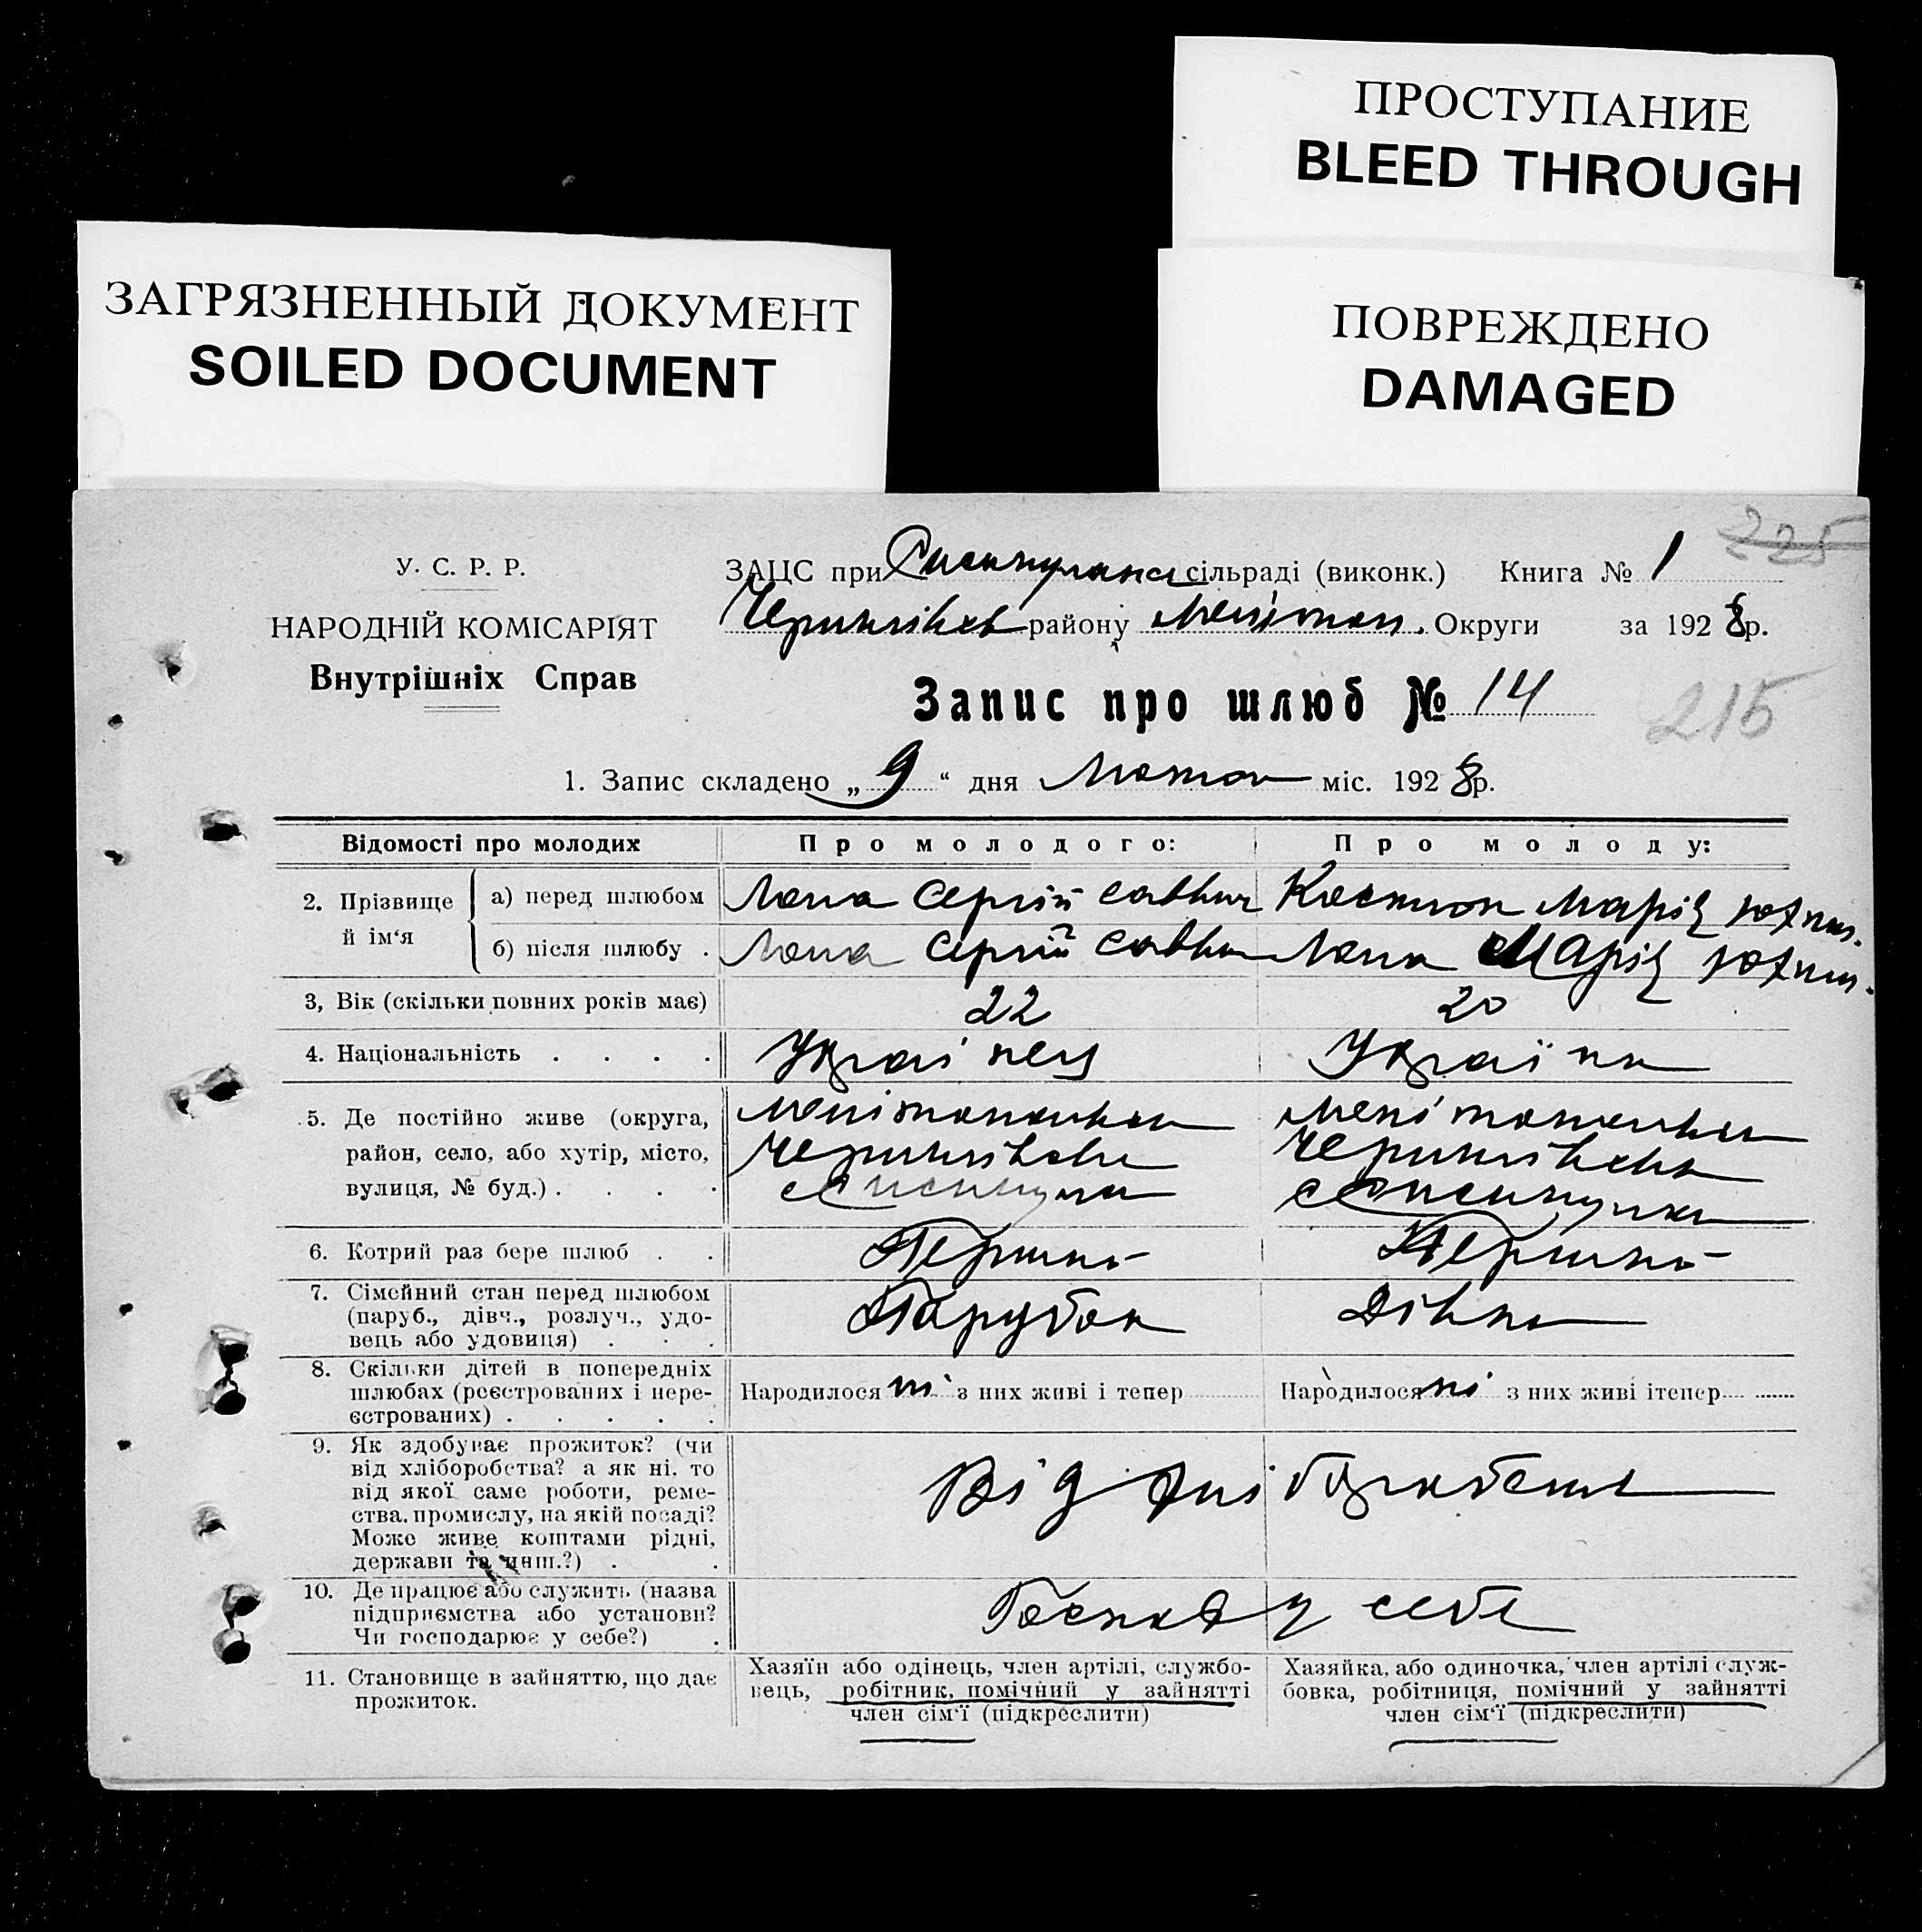 ПРОСТУПАНИЕ
BLEED THROUGH
ЗАГРЯЗНЕННЫЙ ДОКУМЕНТ
SOILED DOCUMENT
ПОВРЕЖДЕНО
DAMAGED
225
У. С. Р. Р.
НАРОДНІЙ КОМІСАРІЯТ
Внутрішніх Справ
ЗАЦС при сільраді (виконк.) Книга № 1
району Округи за 1928р.
Запис про шлюб № 14
215
1. Запис складено „ 9 “ дня Лютого міс. 1928р.
Відомості про молодих
Про молодого:
Про молоду:
2. Прізвище й ім‘я
а) перед шлюбом
Лопа Сергій Саввич
Марія
б) після шлюбу .
Лопа Сергій Савви
Лопа Марія
3, Вік (скільки повних років має)
22
20
4. Національність . . . .
Українец
Українка
5. Де постійно живе (округа,
район, село, або хутір, місто,
вулиця, № буд.) . . . .
6. Котрий раз бере шлюб . .
Перший
Перший
7. Сімейний стан перед шлюбом
(паруб., дівч., розлуч., удо-
вець або удовиця) . . .
Парубок
Дівка
8. Скільки дітей в попередніх
шлюбах (реєстрованих і нере-
єстрованих) . . . . .
Народилося ні з них живі і тепер
Народилося ні з них живі ітепер
9. Як здобуває прожиток? (чи
від хліборобства? а як ні, то
від якої саме роботи, реме-
ства, промислу, на якій посаді?
Може живе коштами рідні,
держави та инш.?) . .
Від
10. Де працює або служить (назва
підприємства або установи?
Чи господарює у себе?) .
у себе
11. Становище в зайняттю, що дає
прожиток.
Хазяїн або одінець, член артілі, службо-
вець, робітник, помічний у зайнятті
член сім‘ї (підкреслити)
Хазяйка, або одиночка, член артілі служ-
бовка, робітниця, помічний у зайнятті
член сім‘ї (підкреслити)